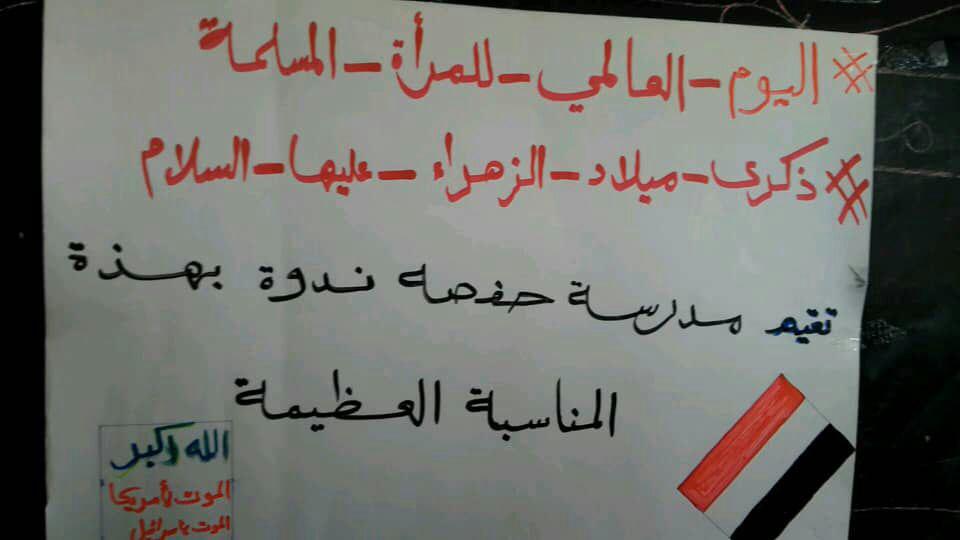 # اليوم - العالمي - للمرأة - المسلمة
# ذكرى - ميلاد - الزهراء - عليها - السلام
تقيم مدرسة حفصه ندوة بهذة
المناسبة العظيمة
الله اكبر
الموت لأمريكا
الموت لإسرائيل